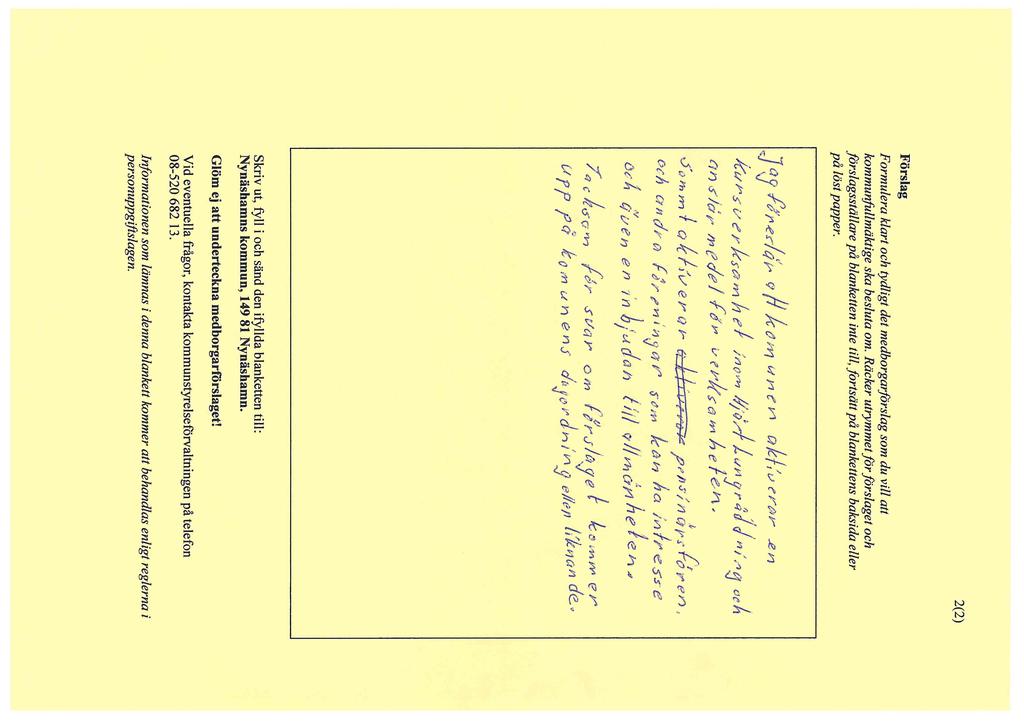 2(2)
Förslag
Formulera klart och tydligt det medborgarförslag som du vill att
kommunfullmäktige ska besluta om. Räcker utrymmet för förslaget och
förslagsställare på blanketten inte till, fortsätt på blankettens baksida eller
på löst papper.
Jag föreslår att komunen aktiverar en
kursverksamhet inom Hjärt Lungräddning och
anslår medel för verksamheten.
Sommt aktiverar aktiverar pensinärsfören,
och andra föreningar som kan ha intresse
och även en inbjudan till allmänheten.
Tacksam för svar om förslaget kommer
upp på komunens dagordning eller liknande.
Skriv ut, fyll i och sänd den ifyllda blanketten till:
Nynäshamns kommun, 149 81 Nynäshamn.
Glöm ej att underteckna medborgarförslaget!
Vid eventuella frågor, kontakta kommunstyrelseförvaltningen på telefon
08-520 682 13.
Informationen som lämnas i denna blankett kommer att behandlas enligt reglerna i
personuppgiftslagen.